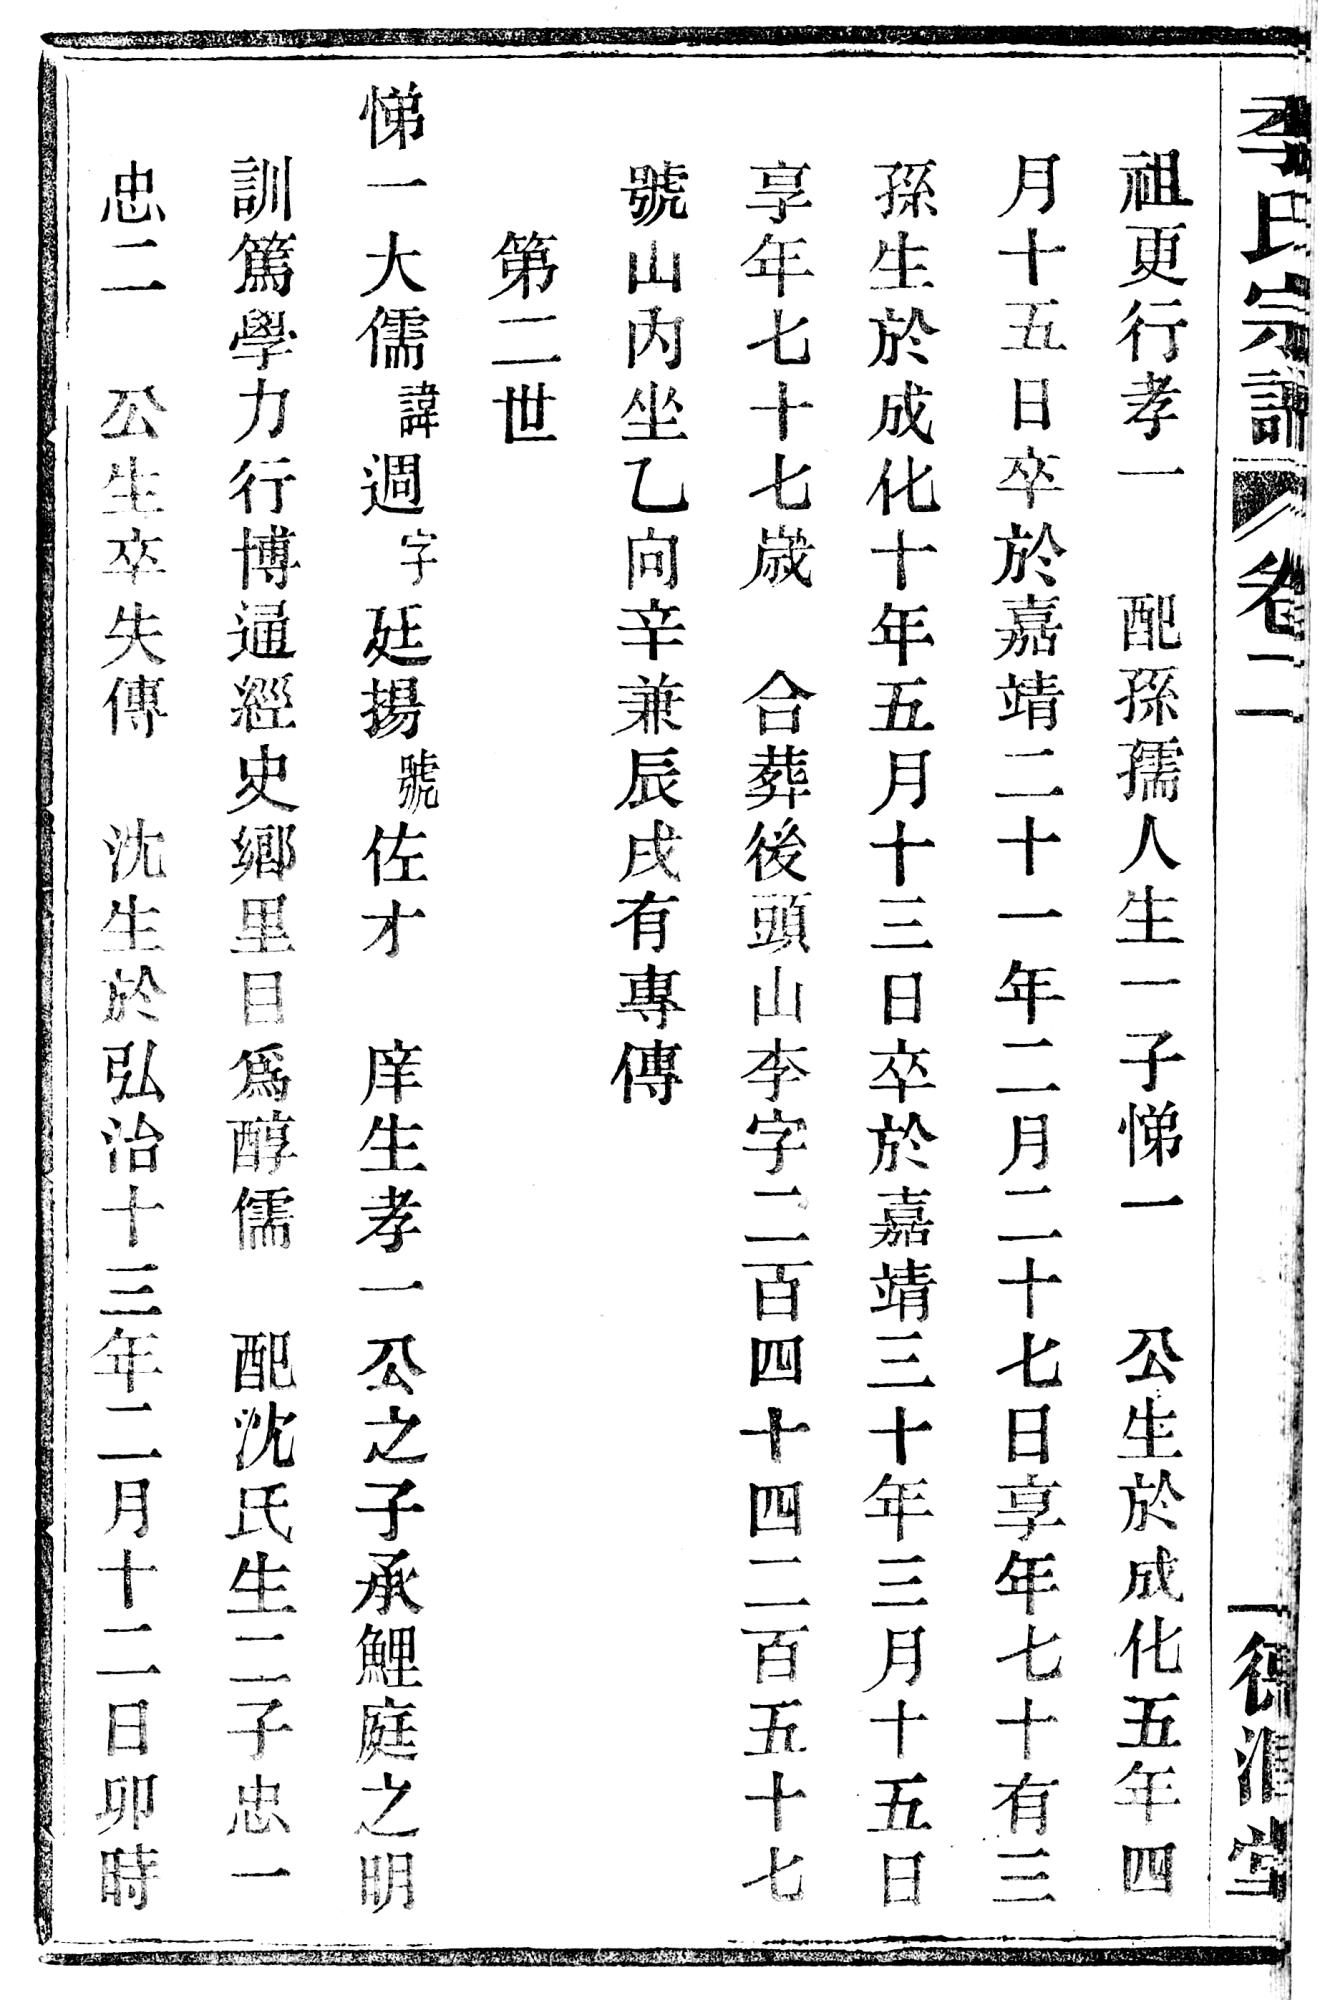 李氏宗譜 卷二
祖更行孝一 配孫孺人生一子悌一 公生於成化五年四
月十五日卒於嘉靖二十一年二月二十七日享年七十有三
孫生於成化十年五月十三日卒於嘉靖三十年三月十五日
享年七十七歲 合葬後頭山李字二百四十四二百五十七
號山內坐乙向辛兼辰戌有專傳
第二世
悌一大儒諱週字廷揚號佐才 庠生孝一公之子承鯉庭之明
訓篤學力行博通經史鄉里目爲醇儒 配沈氏生二子忠一
忠二 公生卒失傳 沈生於弘治十三年二月十二日卯時